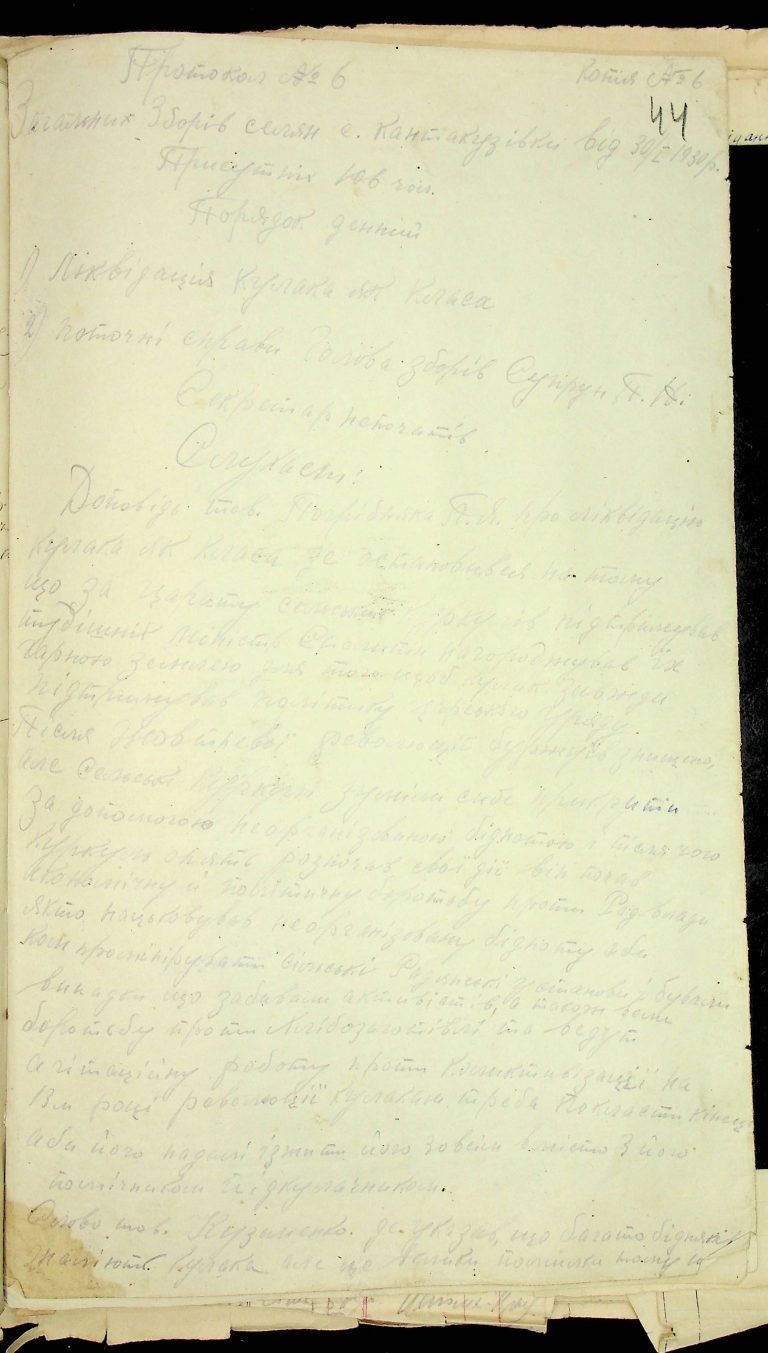 Протокол № 6 Копія № 6
44
Загальних Зборів селян с. Кантакузівки від 30/I 1930 р.
Присутніх 108 чол.
Порядок денний
1) Ліквідація кулака як класа
2) поточні справи Голова зборів Супрун П. Н.
Секретар
Слухали:
Доповідь тов. П. Я. про ліквідацію
кулака як класа де остановився на тому
що за царату сільський підтримував
міністр Столипін нагороджував їх
гарною землею для того щоб кулак завжди
підтримував політику царського уряду
Після Жовтневої революції буржуїв знищено,
але Сельські Куркулі зуміли себе прикрити
За допомогою неорганізованою біднотою і після чого
Куркуль опять розпочав свої дії він почав
економічну й політичну боротьбу проти Рад. влади
якто нацьковував неорганізовану бідноту аби
сільські Радянські установи і бували
випадки що забивали активістів, а також вели
боротьбу проти хлібозаготівлі та ведут
агітаційну роботу проти колективізації на
13м році революції кулакам треба покласти кінець
аби його надалі ізжити його зовсім вмісто з його
помічником підкулачником.
Слово тов. Кузименко де указав, що багато бідняків
жаліють кулака але це помилка тому що